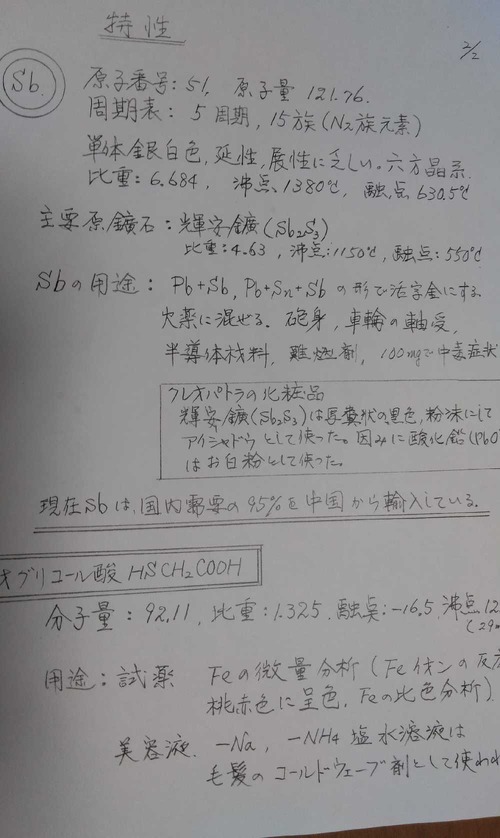 特性
2/2
Sb 原子番号: 51, 原子量 121.76.
周期表: 5周期, 15族 (N2族元素)
単体 銀白色, 延性, 展性に乏しい。六方晶系
比重: 6.684, 沸点 1380℃, 融点 630.5℃
主要原鑛石: 輝安鑛 (Sb2S3)
比重: 4.63, 沸点: 1150℃, 融点: 550℃
Sbの用途: Pb+Sb, Pb+Sn+Sb の形で活字金にする
火薬に混ぜる. 砲身, 車輪の軸受,
半導体材料, 難燃剤, 100mgで中毒症状
クレオパトラの化粧品
輝安鑛(Sb2S3)は 状の黒色, 粉沫にして
アイシャドウとして使った。因みに酸化鉛(PbO
はお白粉として使った。
現在Sbは、国内需要の95%を中国から輸入している。
オグリコール酸 HSCH2COOH
分子量: 92.11, 比重: 1.325, 融点: -16.5, 沸点 12
(29m
用途: 試薬 Feの微量分析 (Feイオンの反応
桃赤色に呈色, Feの比色分析)
美容液. -Na, -NH4 塩水溶液は
毛髪のコールドウェーブ剤として使われ